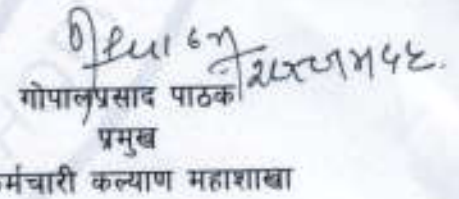 गोपालप्रसाद पाठक
प्रमुख
र्मचारी कल्याण महाशाखा